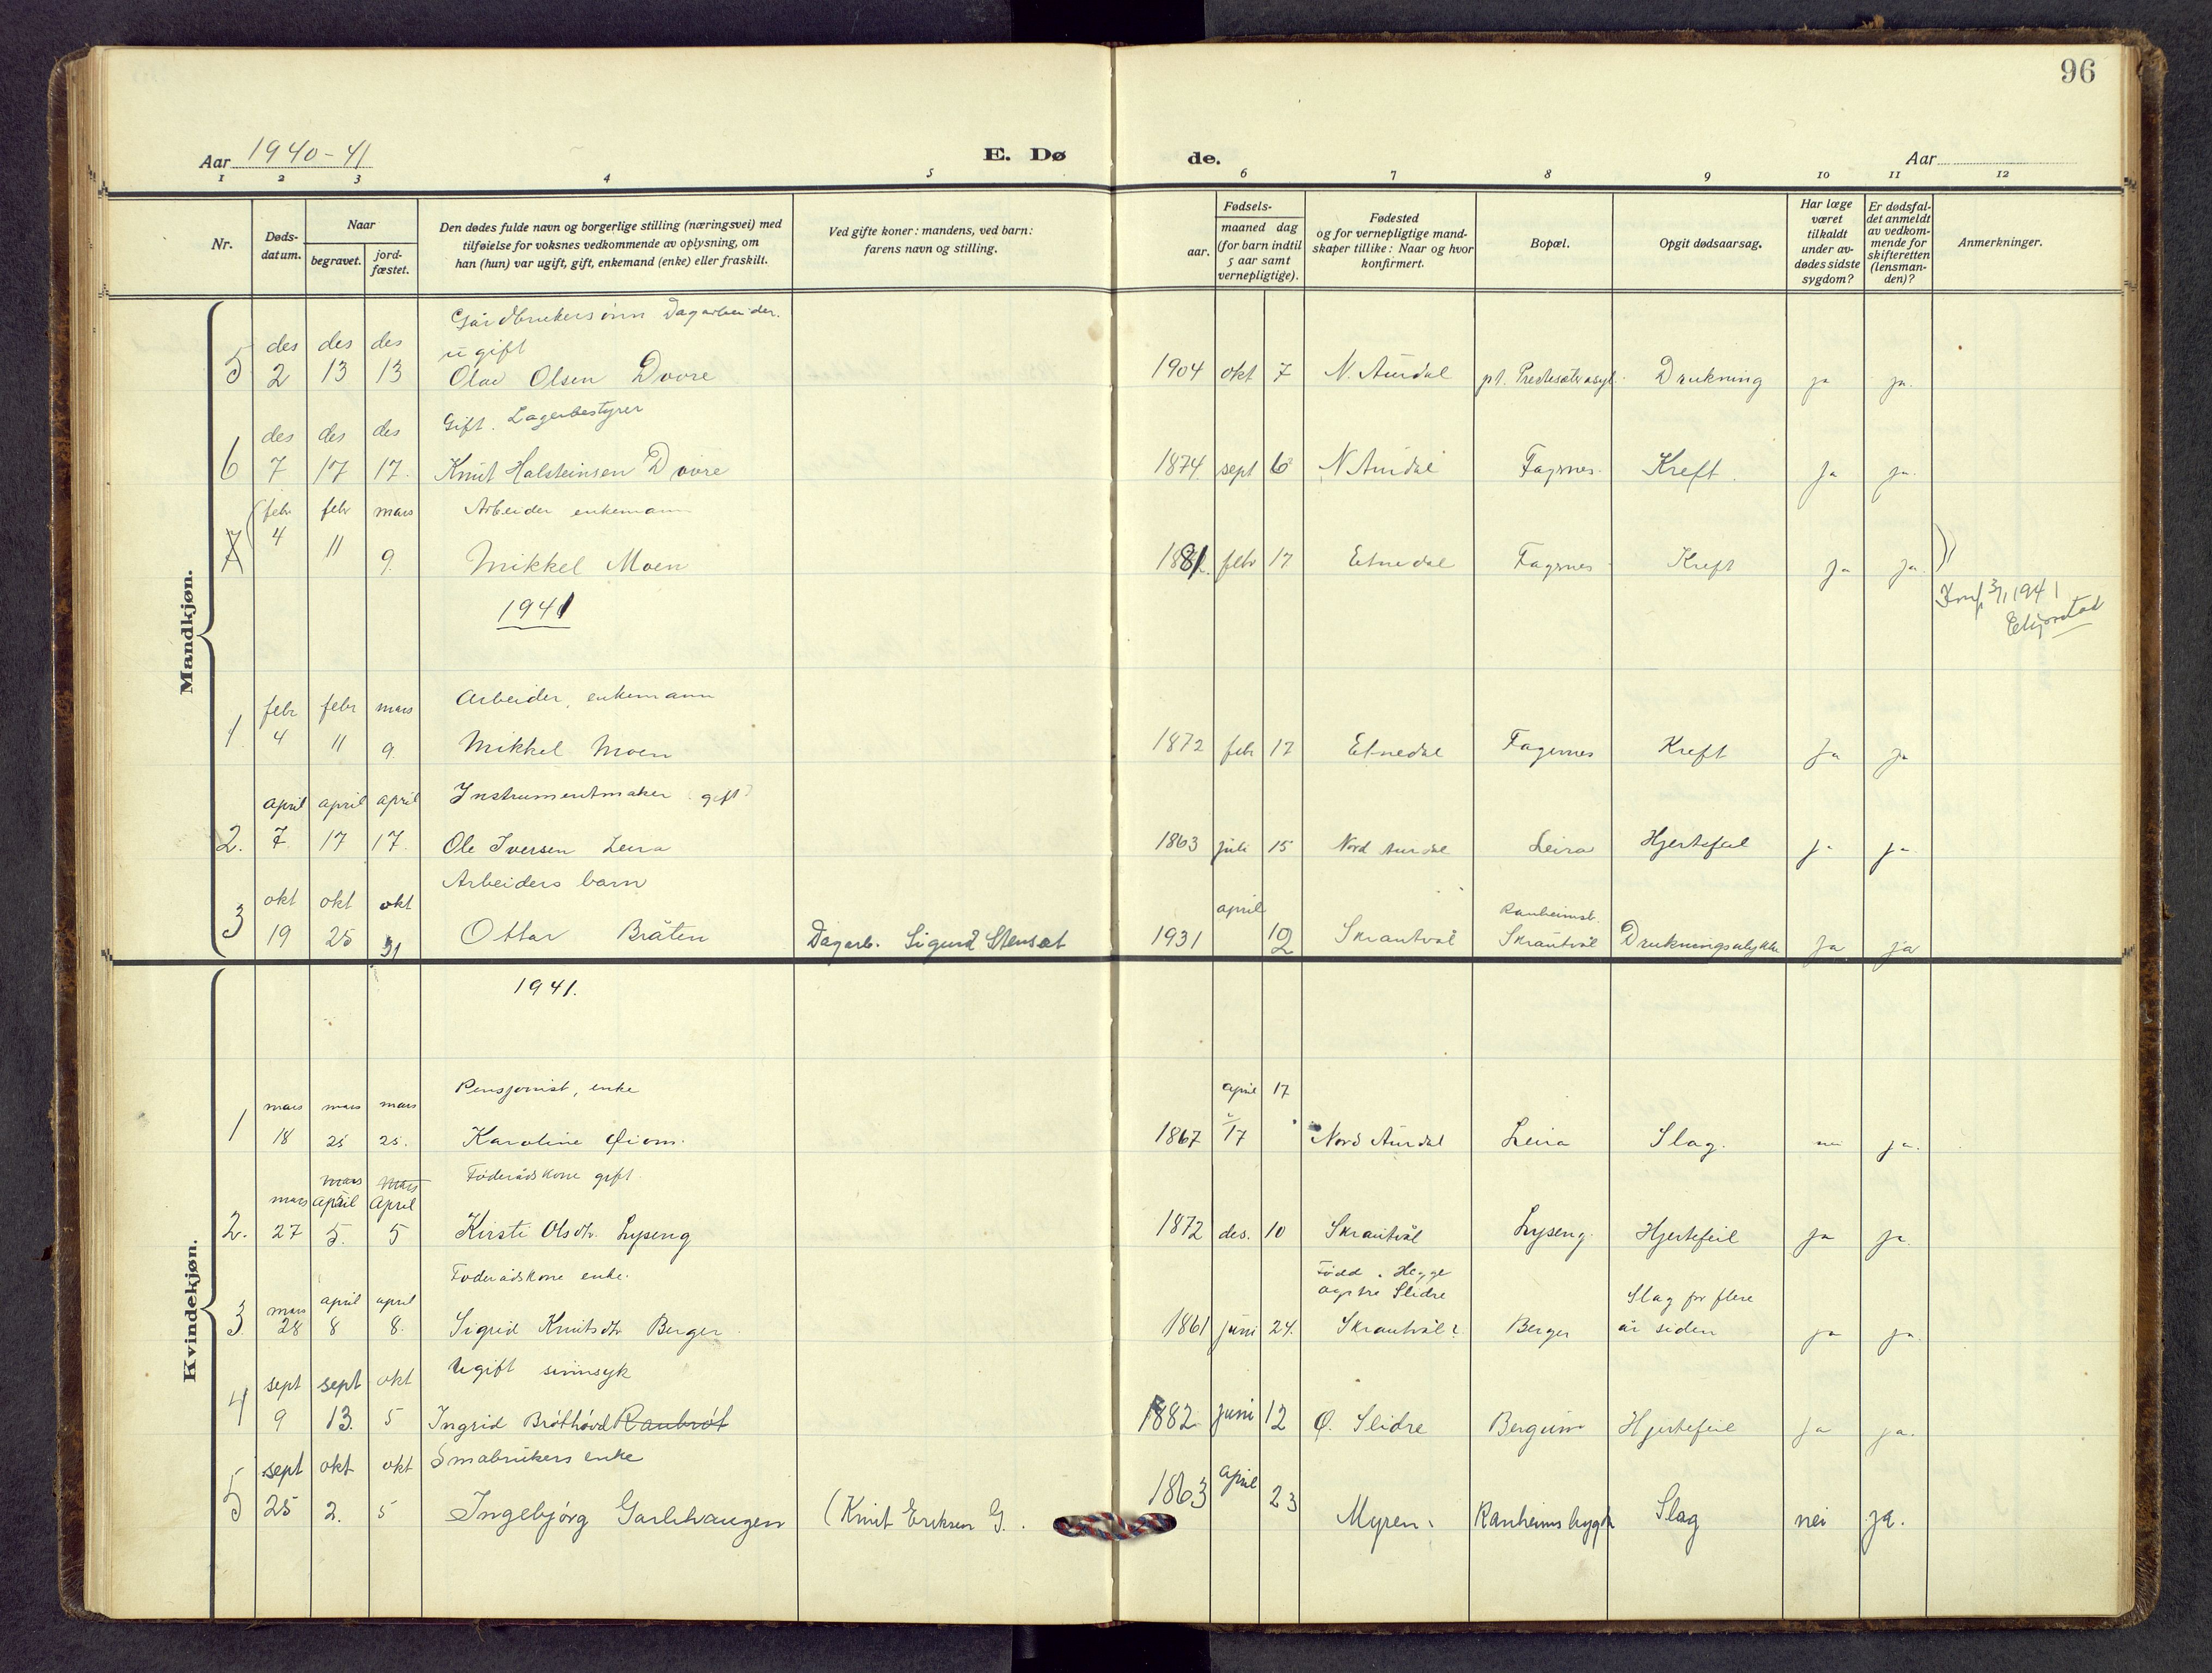 96
Aar 1940-41 E. Dø de. Aar
1 2 3 4 5 6 7 8 9 10 11 12
Nr.
Døds-
datum.
Naar
begravet.
jord-
fæstet.
Den dødes fulde navn og borgerlige stilling (næringsvei) med
tilføielse for voksnes vedkommende av oplysning, om
han (hun) var ugift, gift, enkemand (enke) eller fraskilt.
Ved gifte koner: mandens, ved barn:
farens navn og stilling.
Fødsels-
aar.
maaned dag
(for barn indtil
5 aar samt
vernepligtige).
Fødested
og for vernepligtige mand-
skaper tillike: Naar og hvor
konfirmert.
Bopæl.
Opgit dødsaarsag.
Har læge
været
tilkaldt
under av-
dødes sidste
sygdom?
Er dødsfal-
det anmeldt
av vedkom-
mende for
skifteretten
(lensman-
den)?
Anmerkninger.
Mandkjøn.
Gårdbrukersønn Dagarbeider.
des des des ugift
5 2 13 13 Olav Olsen Dovre 1904 okt 7 N. Aurdal pt. Prestesæterasyl. Drukning ja ja.
des des des Gift. Lagerbestyrer
6 7 17 17. Knut Halsteinsen Dovre 1874 sept 6 N. Aurdal Fagernes. Kreft. Ja ja.
febr febr mars Arbeider enkemann
7 4 11 9. Mikkel Moen 1881 febr 17 Etnedal Fagernes Kreft Ja Ja.
1941
3/1 1941
febr febr mars Arbeider, enkemann
1 4 11 9. Mikkel Moen 1872 feb 17 Etnedal Fagernes Kreft Ja ja
april april april Instrumentmaker gift
2. 7. 17 17. Ole Iversen Leira 1863 juli 15 Nord Aurdal Leira Hjertefeil ja ja.
okt okt okt Arbeiders barn april Ranheimsb.
3 19 25 31 Ottar Bråten Dagarb. Sigurd Stensæt 1931 Skrautvål Skrautvål Drukningsulykke Ja ja
Kvindekjøn.
1941.
mars mars mars Pensjonist, enke april 17
1 18 25 25. Karoline 1867 17 Nord Aurdal Leira Slag. nei ja.
mars mars
mars april april Føderådskone gift.
2. 27 5. 5 Kirsti Olsdtr. Lyseng 1872 des. 10 Skrautvål Lyseng Hjertefeil ja ja.
mars april april Føderådskone enke. Født i Hegge
Øystre Slidre Slag for flere
3. 28 8 8. Sigrid Knutsdtr Berger 1861 juni 24. Skrautvål? Berger år siden ja ja.
sept sept okt Ugift sinnsyk
4 9 13. 5 Ingrid Bröthövd Raubröt 1882 juni 12 Ø. Slidre Bergum Hjertefeil Ja ja.
sept okt okt Småbrukers enke april
5 25 2. 5 Ingebjørg Garlihaugen (Knut Eriksen G. 1863 23 Myren. Ranheimsbygda Slag nei ja.